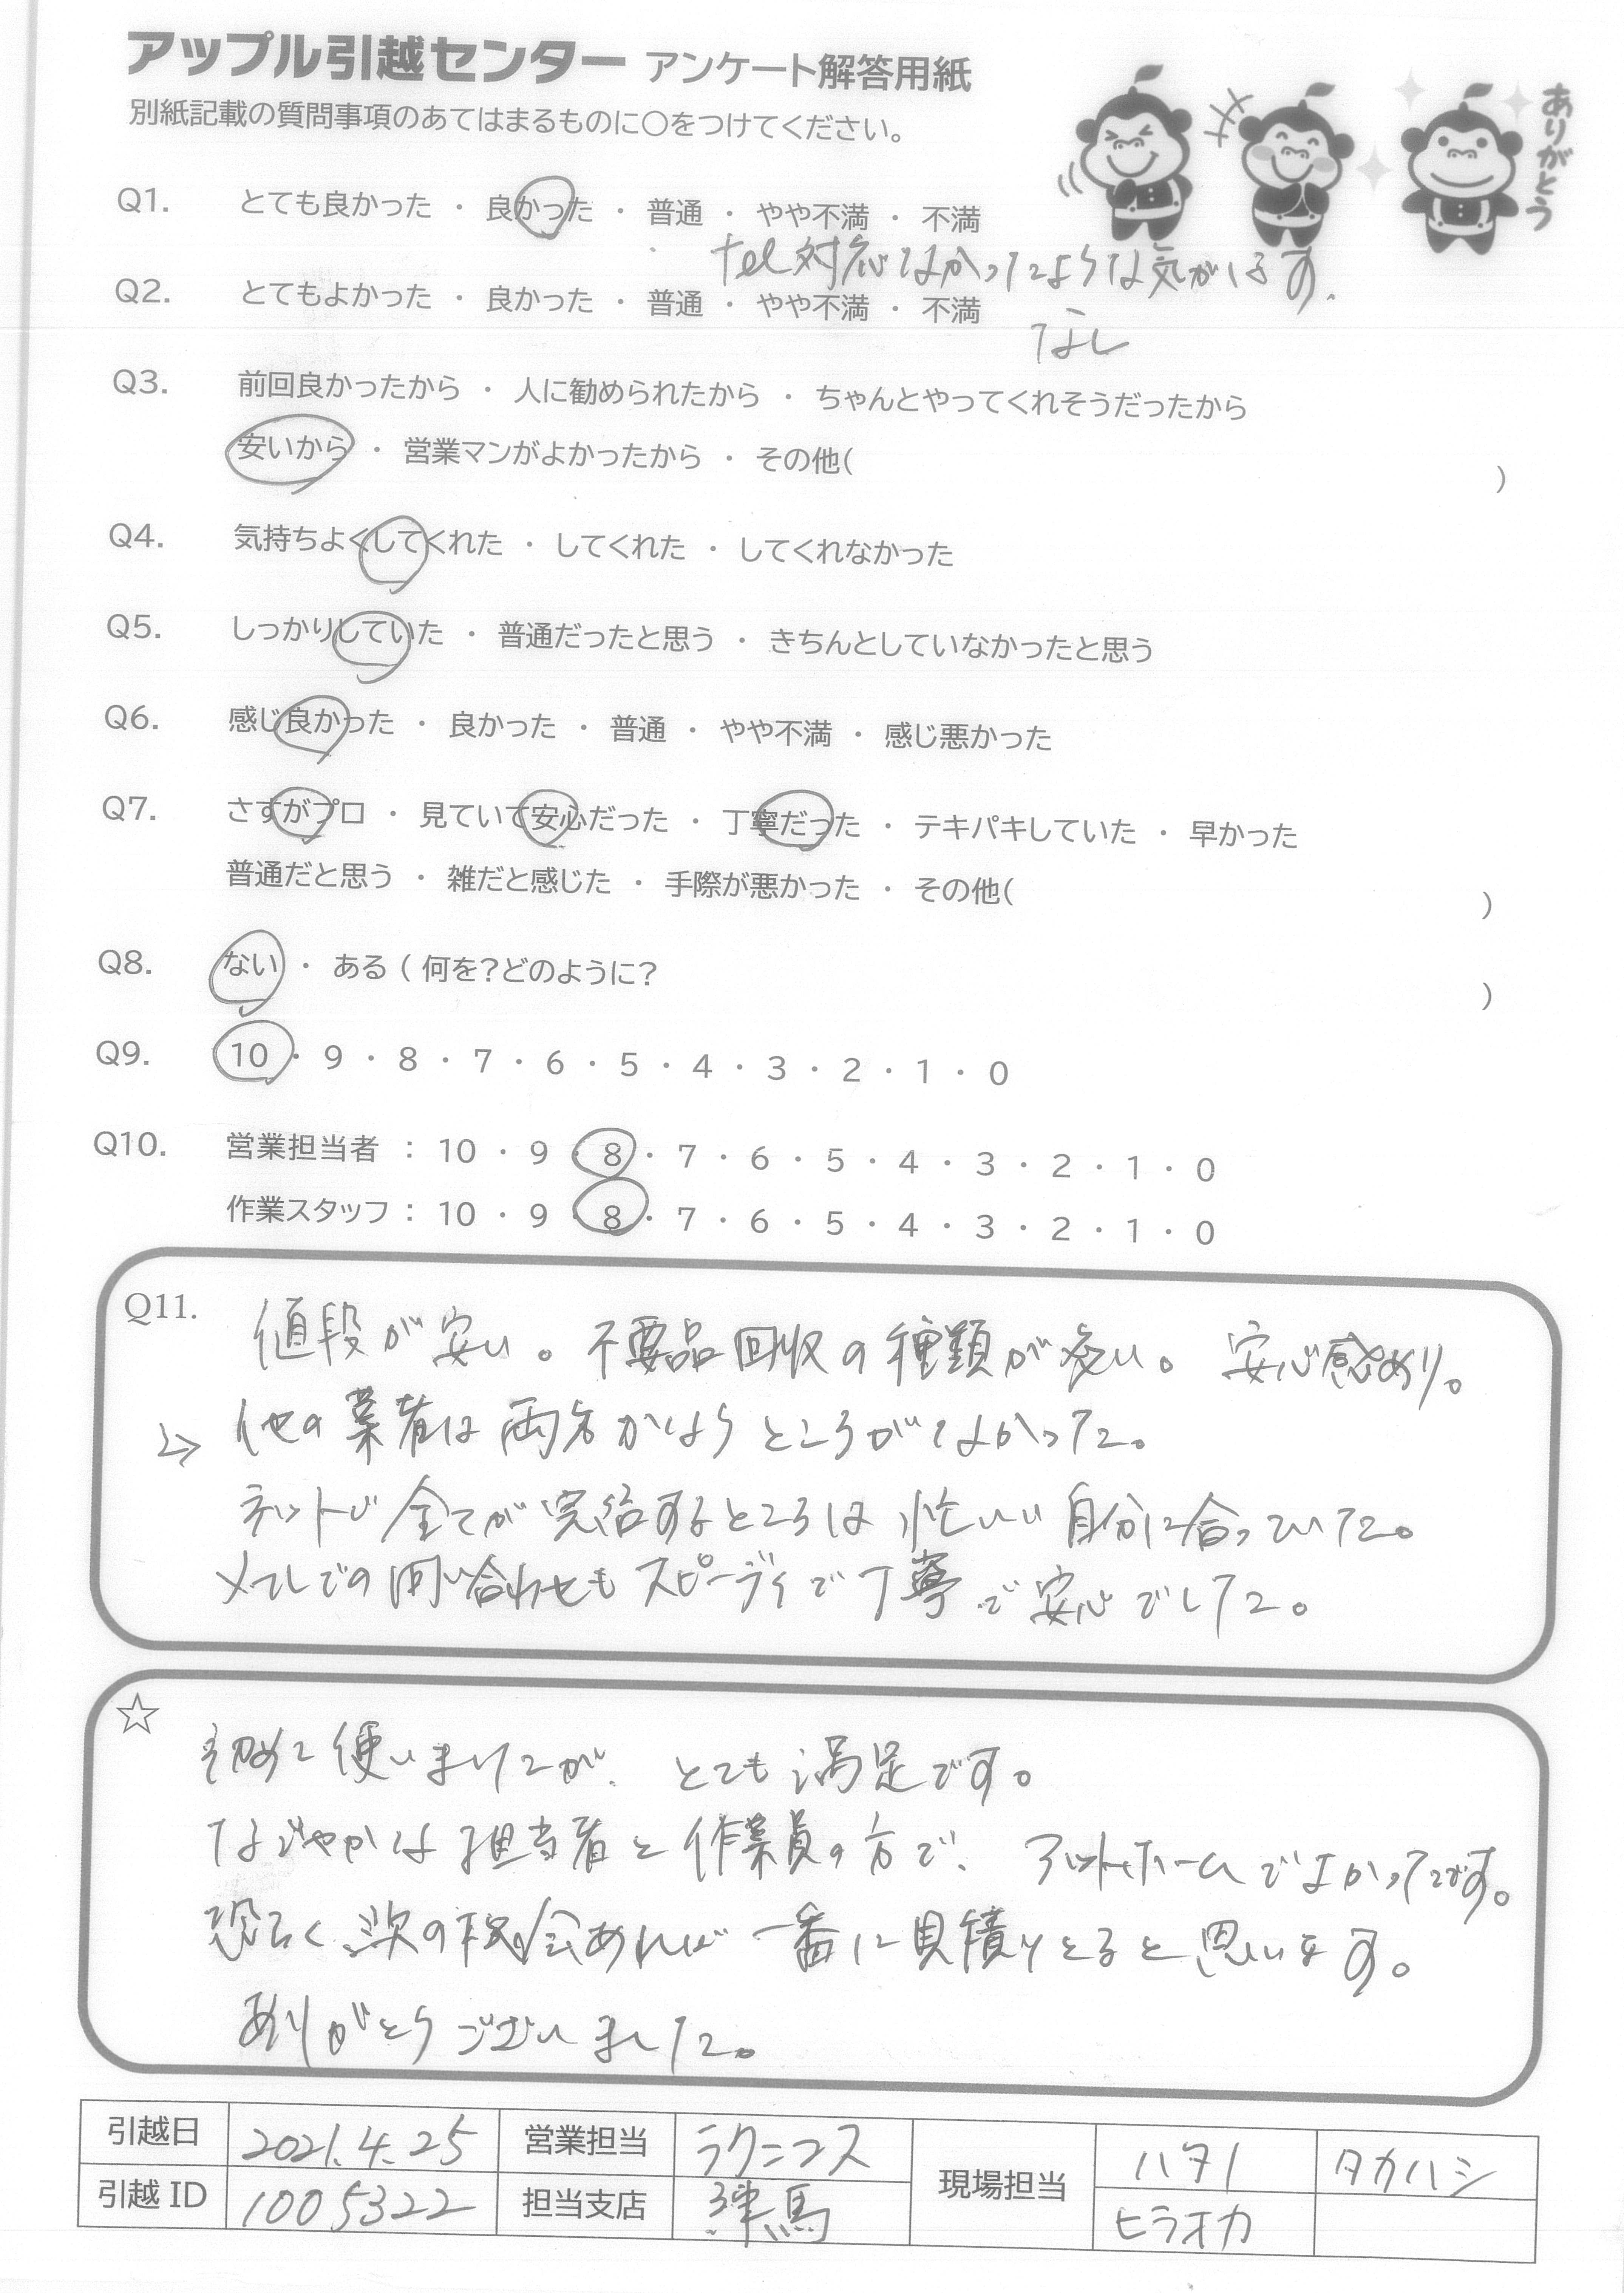 アップル引越センター アンケート解答用紙
別紙記載の質問事項のあてはまるものに〇をつけてください。
ありがとう
Q1. とても良かった ・ 良かった ・ 普通 ・ やや不満 ・ 不満
tel対応なかったような気がします.
Q2. とてもよかった ・ 良かった ・ 普通 ・ やや不満 ・ 不満
なし
Q3. 前回良かったから ・ 人に勧められたから ・ ちゃんとやってくれそうだったから
安いから ・ 営業マンがよかったから ・ その他( )
Q4. 気持ちよくしてくれた ・ してくれた ・ してくれなかった
Q5. しっかりしていた ・ 普通だったと思う ・ きちんとしていなかったと思う
Q6. 感じ良かった ・ 良かった ・ 普通 ・ やや不満 ・ 感じ悪かった
Q7. さすがプロ ・ 見ていて安心だった ・ 丁寧だった ・ テキパキしていた ・ 早かった
普通だと思う ・ 雑だと感じた ・ 手際が悪かった ・ その他( )
Q8. ない ・ ある ( 何を?どのように? )
Q9. 10 ・ 9 ・ 8 ・ 7 ・ 6 ・ 5 ・ 4 ・ 3 ・ 2 ・ 1 ・ 0
Q10. 営業担当者 : 10 ・ 9 ・ 8 ・ 7 ・ 6 ・ 5 ・ 4 ・ 3 ・ 2 ・ 1 ・ 0
作業スタッフ : 10 ・ 9 ・ 8 ・ 7 ・ 6 ・ 5 ・ 4 ・ 3 ・ 2 ・ 1 ・ 0
Q11. 値段が安い。不要品回収の種類が多い。安心感あり。
→ 他の業者は両方かなうところがなかった。
ネットで全てが完結するところは忙しい自分に合っていた。
メールでの問い合わせもスピーディで丁寧で安心でした。
☆ 初めて使いましたが、とても満足です。
なごやかな担当者と作業員の方で、アットホームでよかったです。
恐らく次の機会あれば一番に見積りとると思います。
ありがとうございました。
引越日 2021.4.25 営業担当 ラクニコス 現場担当 ハタノ タカハシ
引越 ID 1005322 担当支店 練馬 ヒラオカ